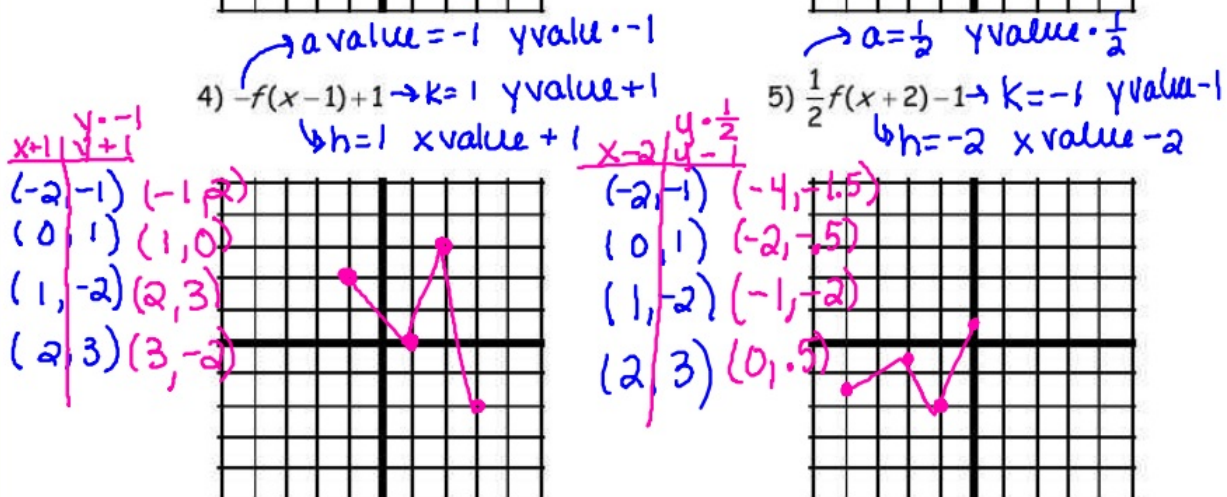 → a value = -1 y value · -1
4) -f(x-1)+1 → k= 1 y value +1
↳ h=1 x value + 1
y · -1
x+1 | y+1
(-2, -1) (-1, 2)
(0, 1) (1, 0)
(1, -2) (2, 3)
(2, 3) (3, -2)
→ a=1/2 y value · 1/2
5) 1/2 f(x+2)-1 → k=-1 y valu-1
↳ h=-2 x value -2
y · 1/2
x-2 | y - 1
(-2, -1) (-4, -1.5)
(0, 1) (-2, -.5)
(1, -2) (-1, -2)
(2, 3) (0, .5)